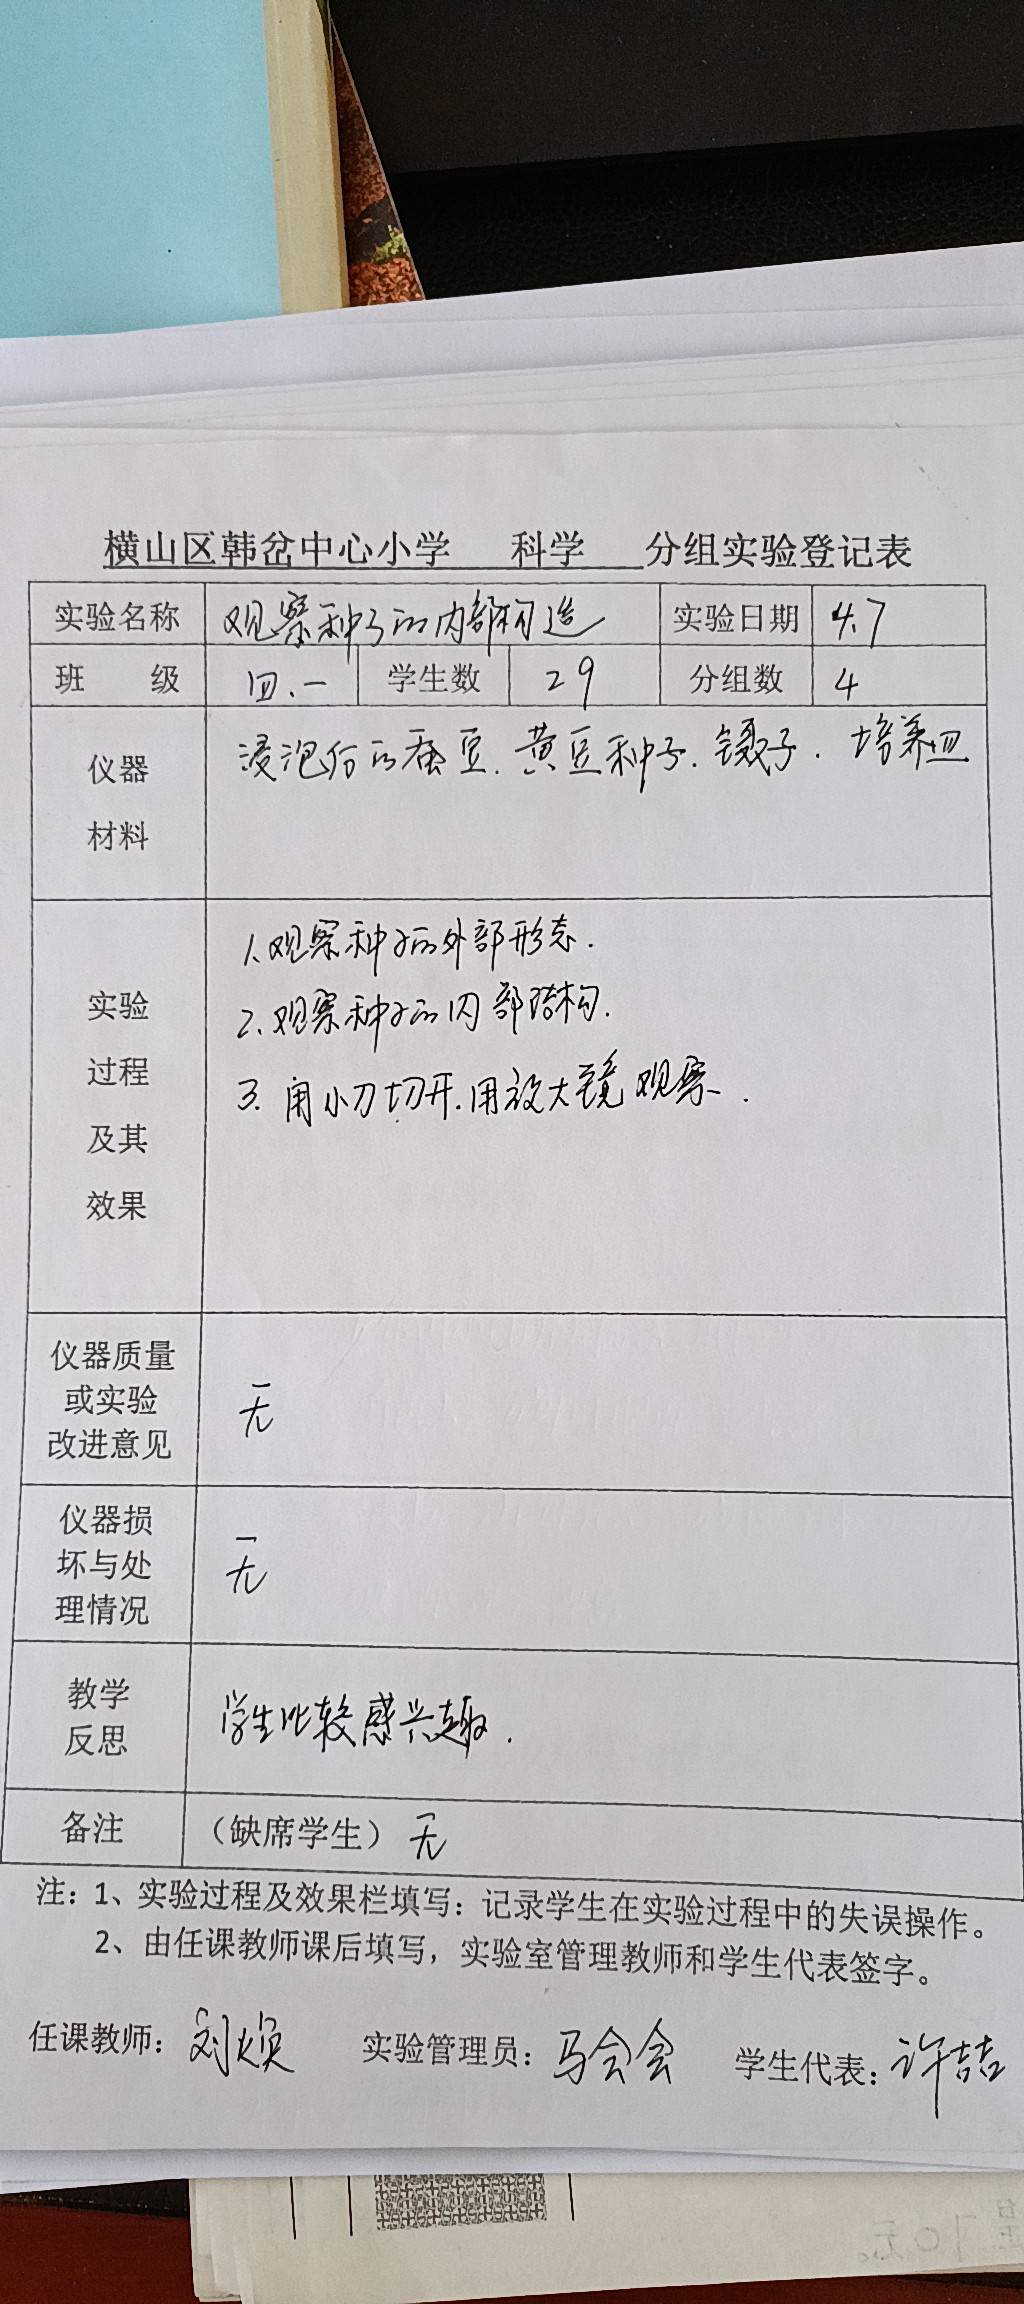 横山区韩岔中心小学 科学 分组实验登记表
实验名称 观察种子的内部构造 实验日期 4.7
班 级 四.一 学生数 29 分组数 4
仪器材料 浸泡后的蚕豆.黄豆种子.镊子.培养皿
实验过程及其效果
1.观察种子的外部形态.
2.观察种子的内部结构.
3.用小刀切开.用放大镜观察.
仪器质量或实验改进意见 无
仪器损坏与处理情况 无
教学反思 学生比较感兴趣.
备注 （缺席学生）无
注：1、实验过程及效果栏填写：记录学生在实验过程中的失误操作。
2、由任课教师课后填写，实验室管理教师和学生代表签字。
任课教师：刘焕 实验管理员：马会会 学生代表：许喆
10元。